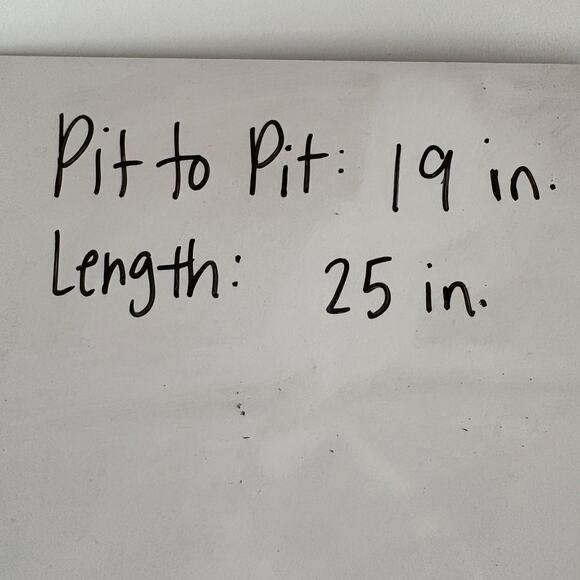 Pit to Pit: 19 in.
Length: 25 in.